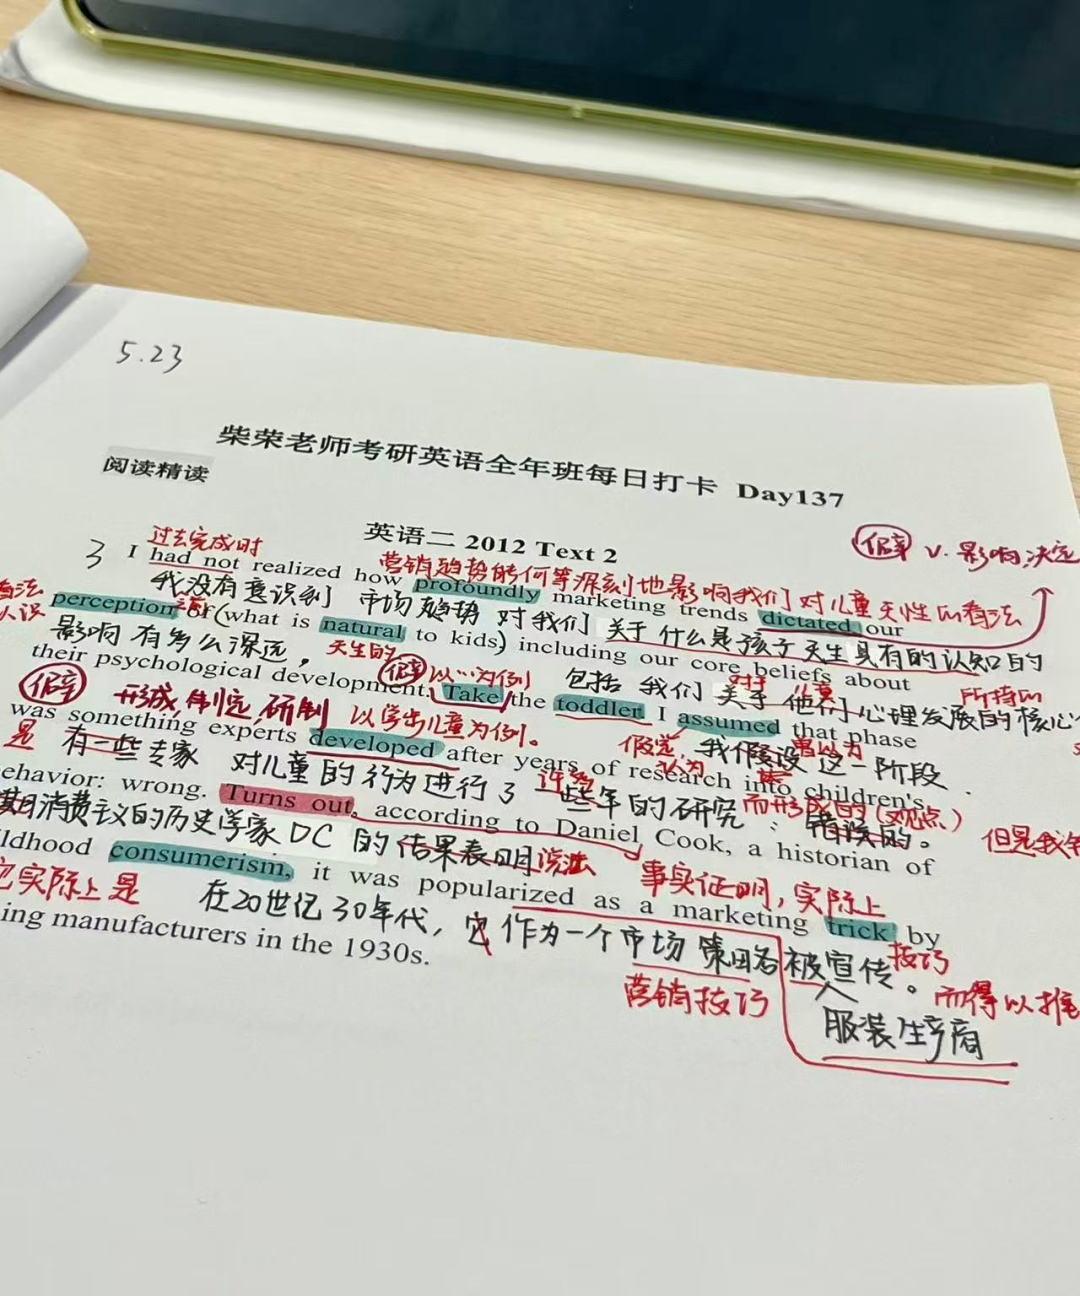 5.23
柴荣老师考研英语全年班每日打卡 Day137
阅读精读
英语二 2012 Text 2
僻 v. 影响,决定
过去完成时
营销趋势能何等深刻地影响我们对儿童天性的看法
3 I had not realized how profoundly marketing trends dictated our
我没有意识到 市场趋势 对我们 关于什么是孩子天生具有的认知的
perception of (what is natural to kids) including our core beliefs about
影响有多么深远, 天生的 以…为例 包括 我们 关于 他们 心理发展的核心
their psychological development. Take the toddler. I assumed that phase
形成,制定,研制 以学步儿童为例。 假定,认为 我假设 这一阶段
was something experts developed after years of research into children's
是 有一些专家 对儿童的行为进行了 些年的研究 而形成的(观点)
ehavior: wrong. Turns out, according to Daniel Cook, a historian of
消费主义的历史学家DC的结果表明 说法 错误的。 但是我
ldhood consumerism, it was popularized as a marketing trick by
实际上是 事实证明,实际上
在20世纪30年代, 它作为一个市场策略被宣传。 技巧
ing manufacturers in the 1930s.
营销技巧 而得以推
服装生产商